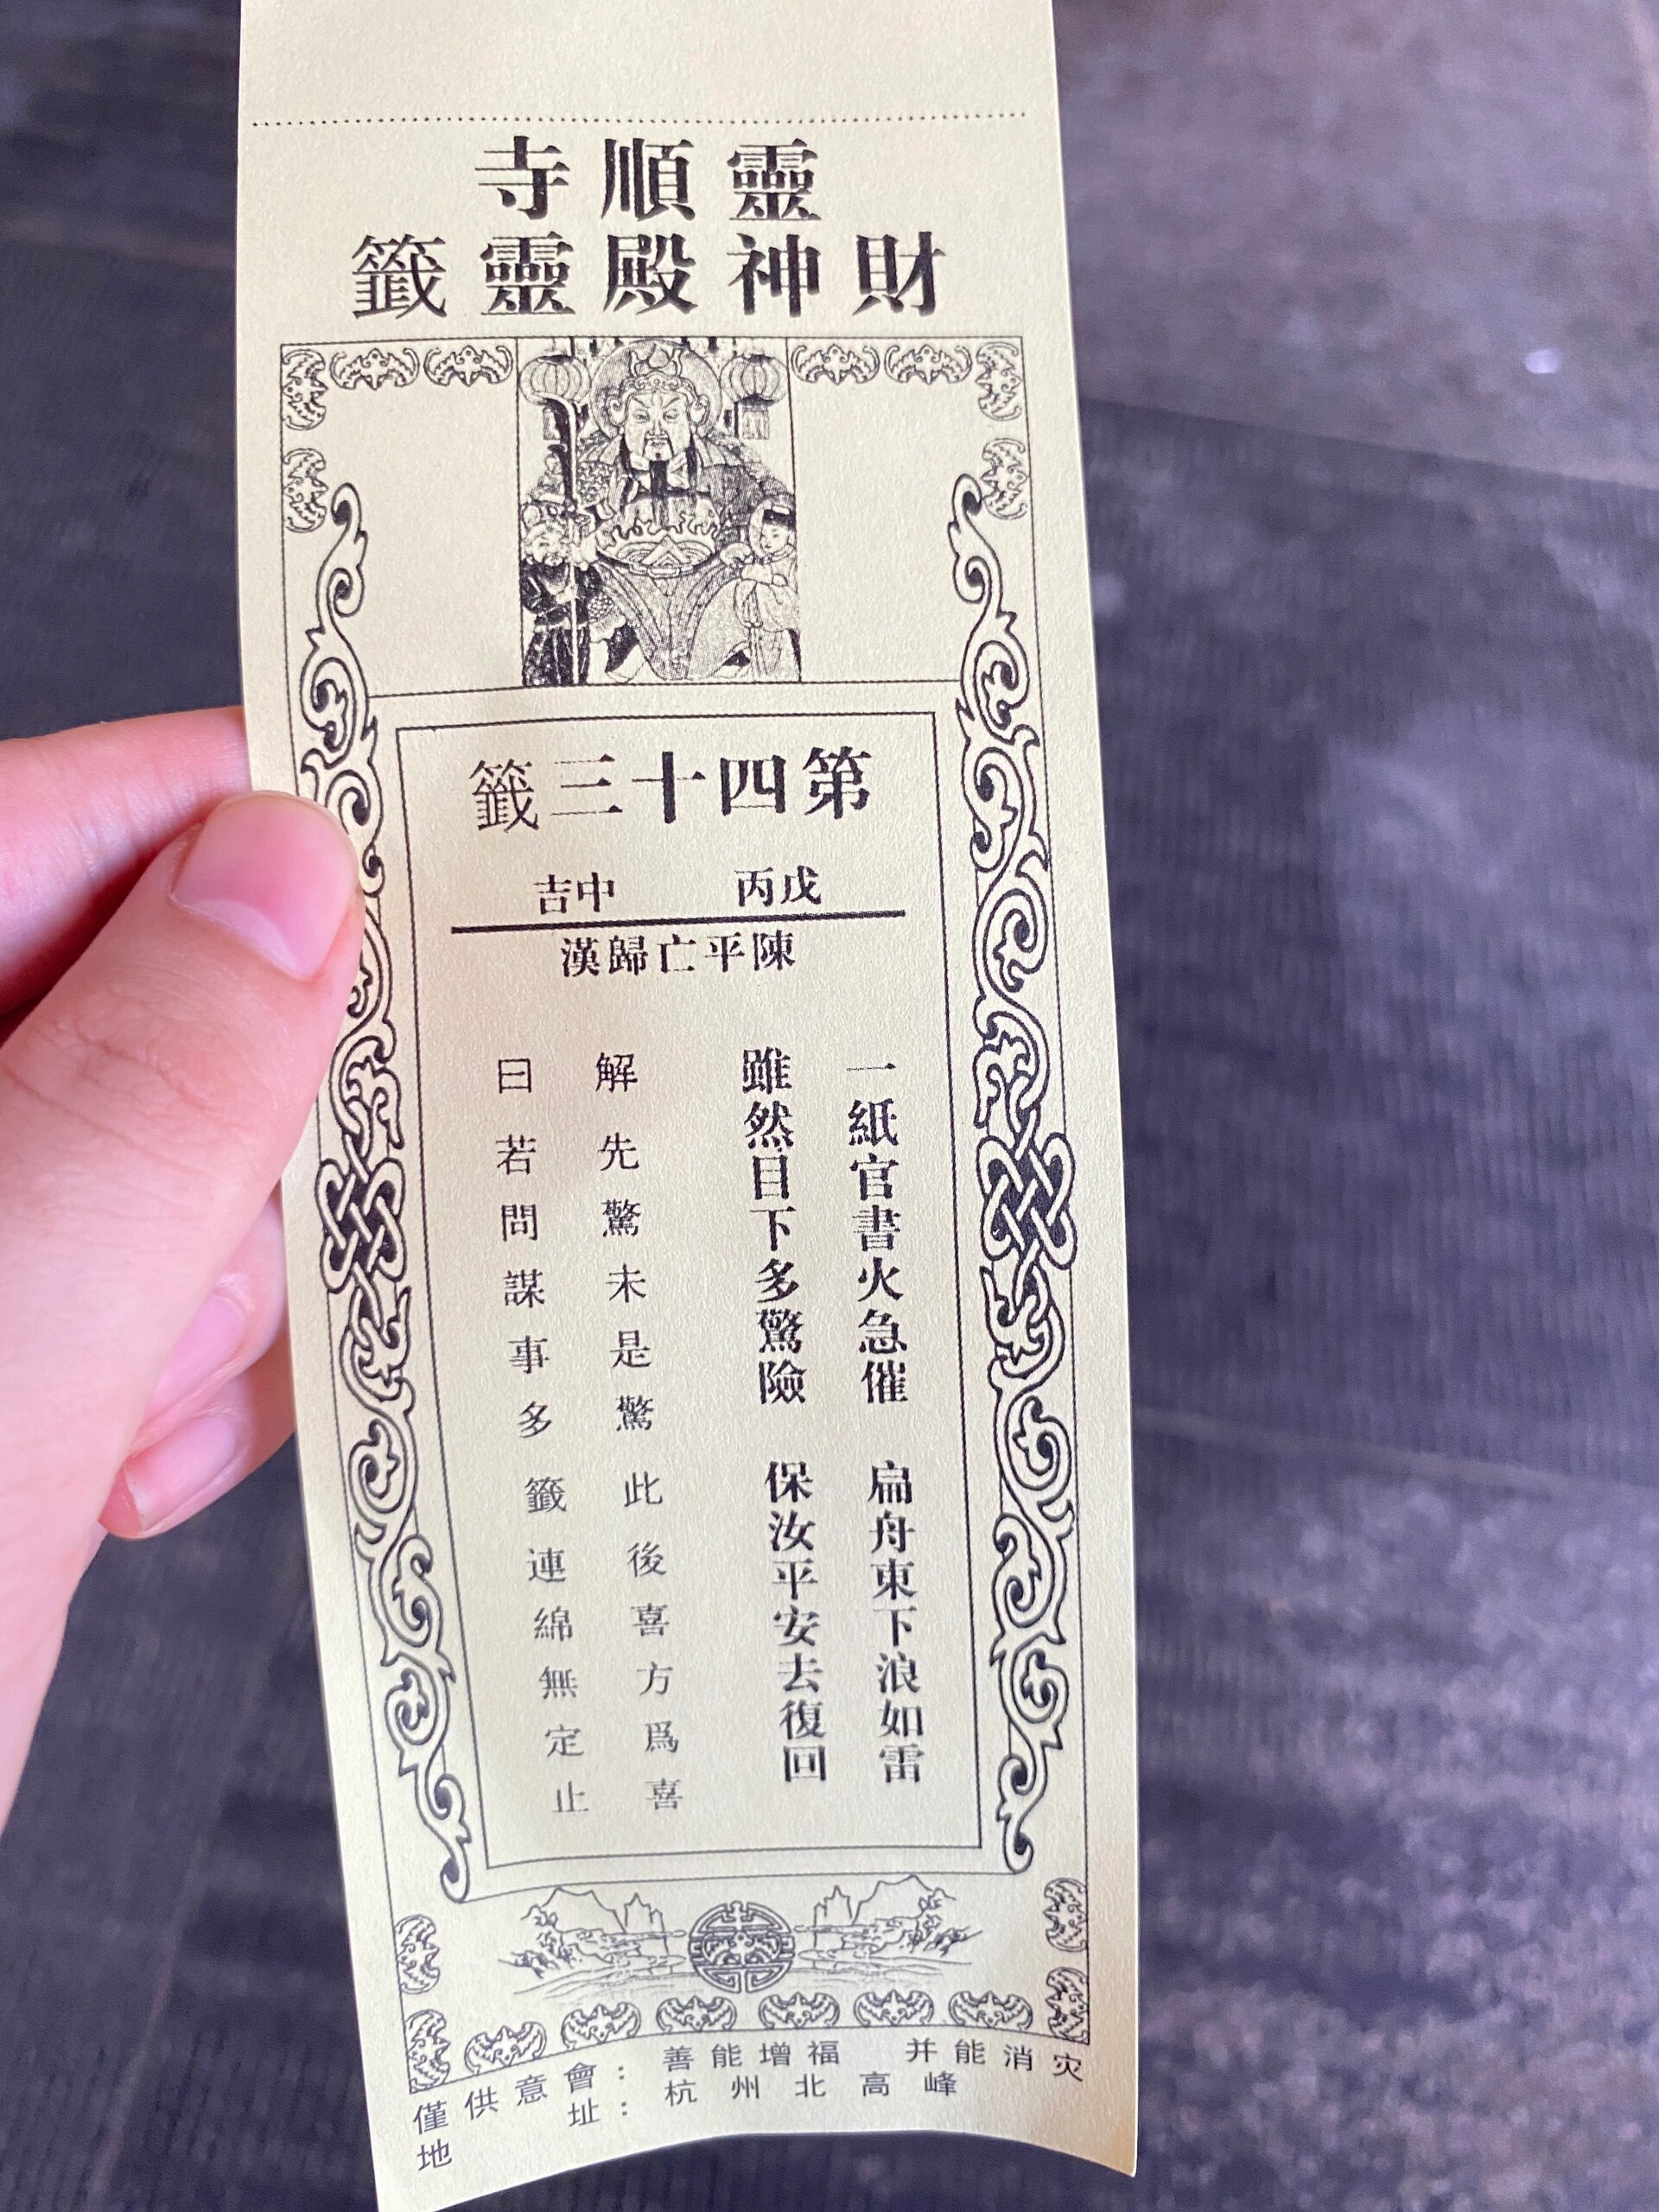 靈順寺
財神殿靈籤
第四十三籤
戊丙 中吉
陳平亡歸漢
一紙官書火急催 扁舟東下浪如雷
雖然目下多驚險 保汝平安去復回
解先驚未是驚 此後喜方爲喜
曰若問謀事多 籤連綿無定止
僅供意會：善能增福 并能消灾
地址：杭州北高峰